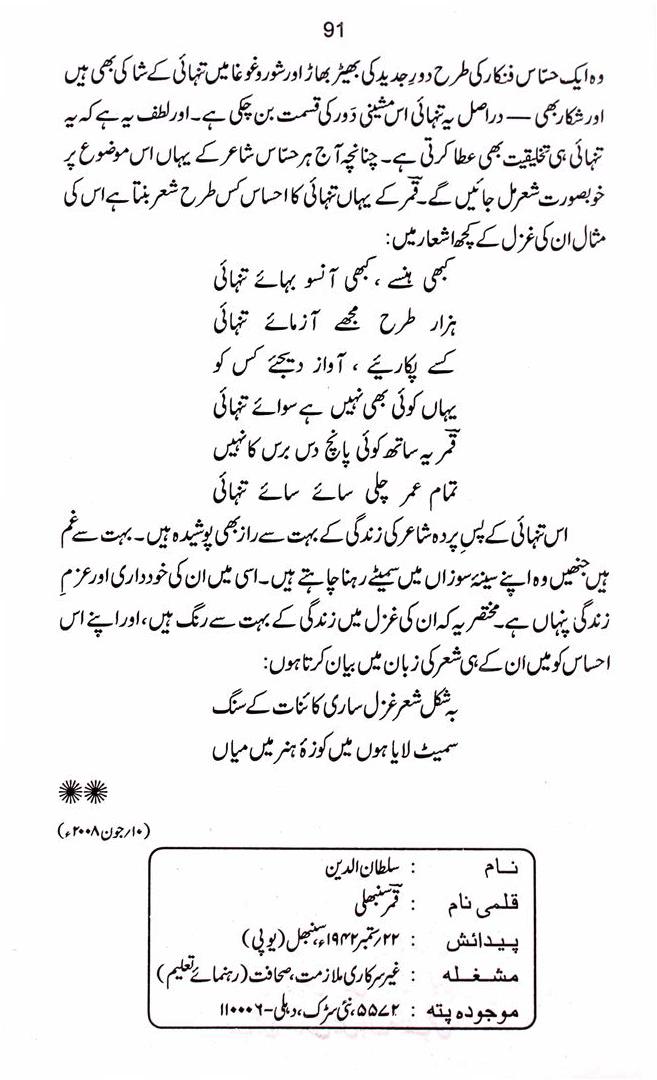 91
وہ ایک حسّاس فنکار کی طرح دورِ جدید کی بھیڑ بھاڑ اور شور و غوغا میں تنہائی کے شاکی بھی ہیں
اور شکار بھی — دراصل یہ تنہائی اس مشینی دَور کی قسمت بن چکی ہے۔ اور لطف یہ ہے کہ یہ
تنہائی ہی تخلیقیت بھی عطا کرتی ہے۔ چنانچہ آج ہر حسّاس شاعر کے یہاں اس موضوع پر
خوبصورت شعر مل جائیں گے۔ قمؔر کے یہاں تنہائی کا احساس کس طرح شعر بنتا ہے اس کی
مثال ان کی غزل کے کچھ اشعار میں:
کبھی ہنسے ، کبھی آنسو بہائے تنہائی
ہزار طرح مجھے آزمائے تنہائی
کسے پکاریئے ، آواز دیجئے کس کو
یہاں کوئی بھی نہیں ہے سوائے تنہائی
قمؔر یہ ساتھ کوئی پانچ دس برس کا نہیں
تمام عمر چلی سائے سائے تنہائی
اس تنہائی کے پسِ پردہ شاعر کی زندگی کے بہت سے راز بھی پوشیدہ ہیں۔ بہت سے غم
ہیں جنھیں وہ اپنے سینۂ سوزاں میں سمیٹے رہنا چاہتے ہیں۔ اسی میں ان کی خودداری اور عزمِ
زندگی پنہاں ہے۔ مختصر یہ کہ ان کی غزل میں زندگی کے بہت سے رنگ ہیں، اور اپنے اس
احساس کو میں اُن کے ہی شعر کی زبان میں بیان کرتا ہوں:
بہ شکل شعر غزل ساری کائنات کے سنگ
سمیٹ لایا ہوں میں کوزۂ ہنر میں میاں
(۱۰/جون ۲۰۰۸ء)
نام : سلطان الدین
قلمی نام : قمؔر سنبھلی
پیدائش : ۲۲/ستمبر ۱۹۴۲ء، سنبھل (یو پی)
مشغلہ : غیر سرکاری ملازمت، صحافت (رہنمائے تعلیم)
موجودہ پتہ : ۵۵۷۲، نئی سڑک، دہلی-۱۱۰۰۰۶